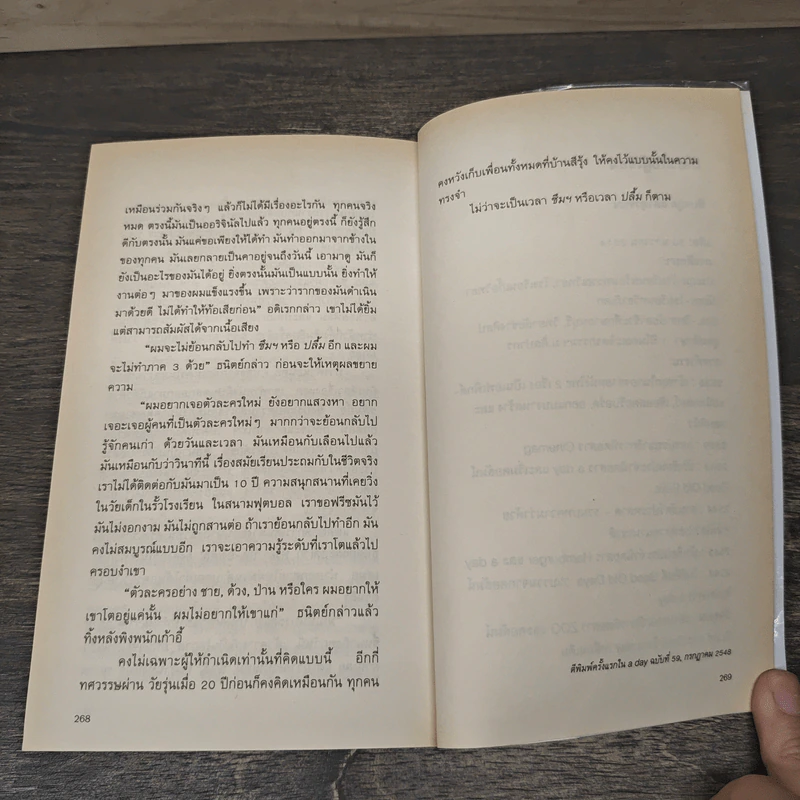 เหมือนร่วมกันจริงๆ แล้วก็ไม่ได้มีเรื่องอะไรกัน ทุกคนจริง
หมด ตรงนี้มันเป็นออริจินัลไปแล้ว ทุกคนอยู่ตรงนี้ ก็ยังรู้สึก
ดีกับตรงนั้น มันแค่ขอเพียงให้ได้ทำ มันทำออกมาจากข้างใน
ของทุกคน มันเลยกลายเป็นคาอยู่จนถึงวันนี้ เอามาดู มันก็
ยังเป็นอะไรของมันได้อยู่ ยิ่งตรงนั้นมันเป็นแบบนั้น ยิ่งทำให้
งานต่อๆ มาของผมแข็งแรงขึ้น เพราะว่ารากของมันดำเนิน
มาด้วยดี ไม่ได้ทำให้ท้อเสียก่อน” อดิเรกกล่าว เขาไม่ได้ยิ้ม
แต่สามารถสัมผัสได้จากเนื้อเสียง
“ผมจะไม่ย้อนกลับไปทำ ซึมฯ หรือ ปลื้ม อีก และผม
จะไม่ทำภาค 3 ด้วย” ธนิตย์กล่าว ก่อนจะให้เหตุผลขยาย
ความ
“ผมอยากเจอตัวละครใหม่ ยังอยากแสวงหา อยาก
เจอะเจอผู้คนที่เป็นตัวละครใหม่ๆ มากกว่าจะย้อนกลับไป
รู้จักคนเก่า ด้วยวันและเวลา มันเหมือนกับเลือนไปแล้ว
มันเหมือนกับว่าวินาทีนี้ เรื่องสมัยเรียนประถมกับในชีวิตจริง
เราไม่ได้ติดต่อกับมันมาเป็น 10 ปี ความสนุกสนานที่เคยวิ่ง
ในวัยเด็กในรั้วโรงเรียน ในสนามฟุตบอล เราขอฟรีซมันไว้
มันไม่งอกงาม มันไม่ถูกสานต่อ ถ้าเราย้อนกลับไปทำอีก มัน
คงไม่สมบูรณ์แบบอีก เราจะเอาความรู้ระดับที่เราโตแล้วไป
ครอบงำเขา
“ตัวละครอย่าง ชาย, ด้วง, ป่าน หรือใคร ผมอยากให้
เขาโตอยู่แค่นั้น ผมไม่อยากให้เขาแก่” ธนิตย์กล่าวแล้ว
ทิ้งหลังพิงพนักเก้าอี้
คงไม่เฉพาะผู้ให้กำเนิดเท่านั้นที่คิดแบบนี้ อีกกี่
ทศวรรษผ่าน วัยรุ่นเมื่อ 20 ปีก่อนก็คงคิดเหมือนกัน ทุกคน
268
คงหวังเก็บเพื่อนทั้งหมดที่บ้านสีรุ้ง ให้คงไว้แบบนั้นในความ
ทรงจำ
ไม่ว่าจะเป็นเวลา ซึมฯ หรือเวลา ปลื้ม ก็ตาม
ตีพิมพ์ครั้งแรกใน a day ฉบับที่ 59, กรกฎาคม 2548
269